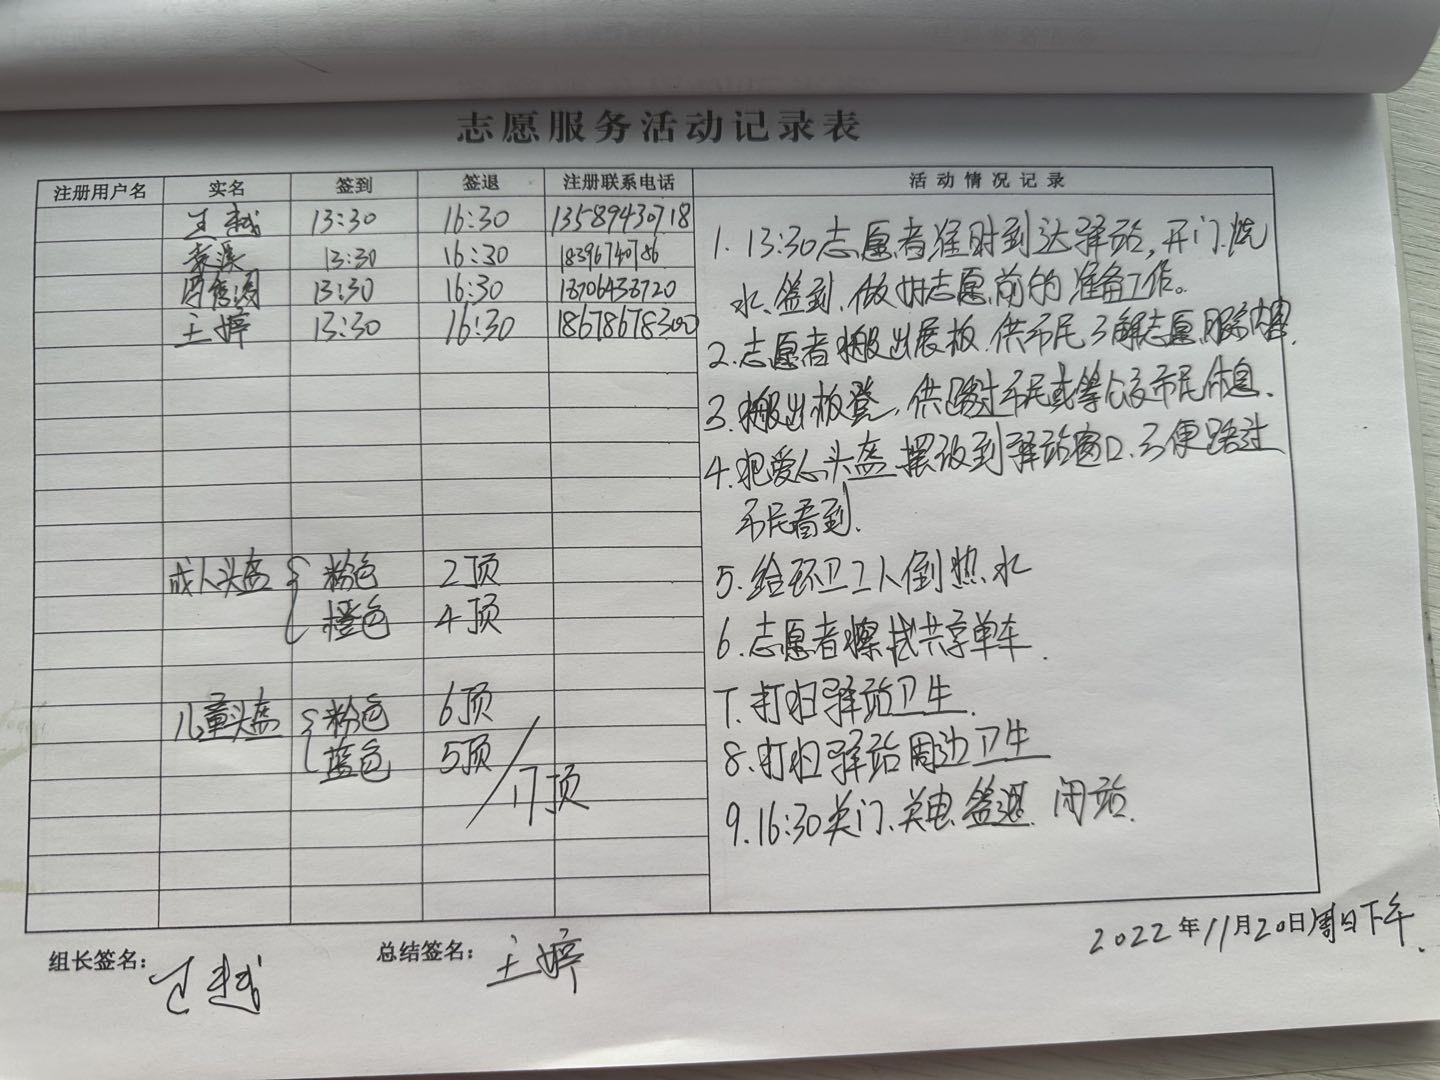 志愿服务活动记录表
注册用户名 实名 签到 签退 注册联系电话 活动情况记录
王越 13:30 16:30 13589430718
袁溪 13:30 16:30 18396740786
13:30 16:30 18706438720
王婷 13:30 16:30 18678678300
1. 13:30志愿者准时到达驿站,开门、烧
水、签到、做好志愿前的准备工作。
2. 志愿者搬出展板,供市民了解志愿服务内容.
3. 搬出板登,供路过市民或等公交市民休息.
4. 把爱心头盔摆放到驿站窗口、方便路过
市民看到.
5. 给环卫工人倒热水
6. 志愿者擦拭共享单车.
7. 打扫驿站卫生.
8. 打扫驿站周边卫生
9. 16:30关门、关电、签退、闭站.
成人头盔 { 粉色 2顶
橙色 4顶
儿童头盔 { 粉色 6顶
蓝色 5顶 / 17顶
组长签名: 王越 总结签名: 王婷 2022年11月20日周日下午.